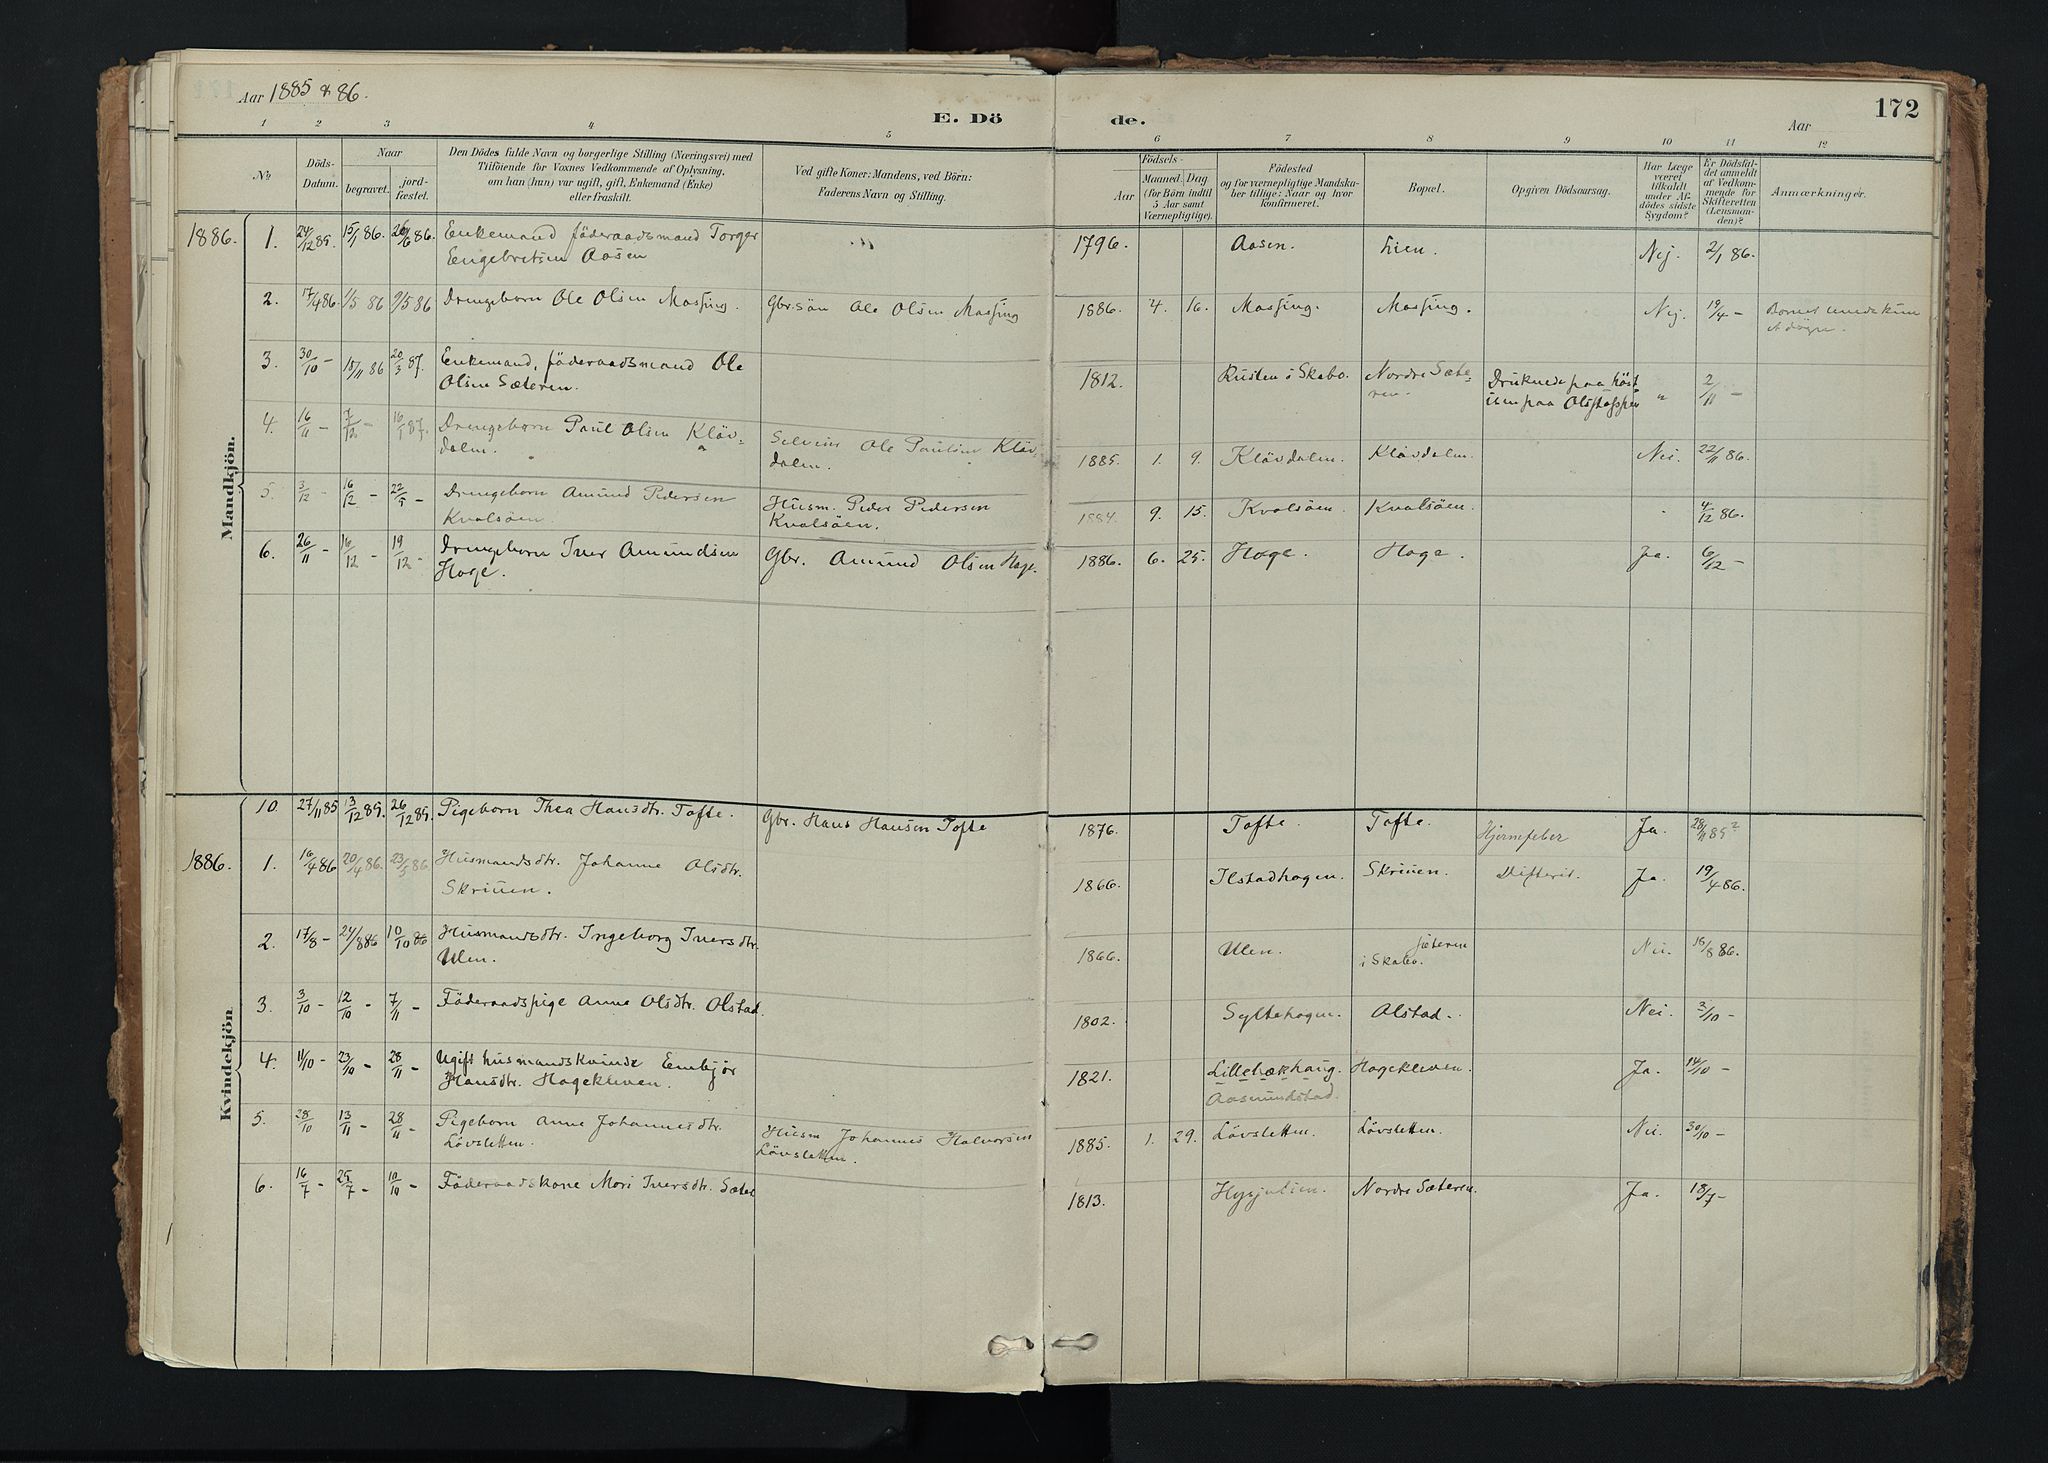 Aar 1885 & 86.
E. Döde.
Aar
172
1 2 3 4 5 6 7 8 9 10 11 12
No.
Döds-Datum.
Naar
begravet.
jord-fæstet.
Den Dödes fulde Navn og borgerlige Stilling (Næringsvei) med
Tilföiende for Voxnes Vedkommende af Oplysning,
om han (hun) var ugift, gift, Enkemand (Enke)
eller fraskilt.
Ved gifte Koner: Mandens, ved Börn:
Faderens Navn og Stilling.
Födsels-
Aar
Maaned. Dag
(for Börn indtil
5 Aar samt
Værnepligtige).
Födested
og for værnepligtige Mandska-
ber tillige: Naar og hvor
konfirmeret.
Bopæl.
Opgiven Dödsaarsag.
Har Læge
været
tilkaldt
under Af-
dödes sidste
Sygdom?
Er Dödsfal-
det anmeldt
af Vedkom-
mende for
Skifteretten
(Lensman-
den)?
Anmærkninger.
Mandkjön.
1886. 1. 24/12 85. 15/1 86. 20/6 86. Enkemand föderaadsmand Torger
Engebretsen Aasen
1796. Aasen. Lien. Nej. 2/1 86.
2. 17/4 86. 1/5 86 9/5 86 Drengebarn Ole Olsen Massing. Gbr.sön Ole Olsen Massing
1886. 4. 16. Massing. Massing. Nej. 19/4 – Barnet
3. 30/10 – 15/11 86 20/3 87. Enkemand, föderaadsmand Ole
Olsen Sæteren.
1812. Rusten i Skabo. Nordre Sæte-
ren. Druknede paa höst
isen paa Olstappen " 2/11 –
4. 16/11 – 7/12 – 16/1 87. Drengebarn Paul Olsen Kläv-
dalen. Selveier Ole Paulsen Kläv-
dalen.
1885. 1. 9. Klävdalen. Klävdalen. Nei. 22/11 86.
5. 3/12 – 16/12 – 22/5 – Drengebarn Amund Pedersen
Kvalsöen. Husm. Peder Pedersen
Kvalsöen.
1884. 9. 15. Kvalsöen. Kvalsöen. 4/12 86.
6. 26/11 – 16/12 – 19/12 – Drengebarn Iver Amundsen
Hage. Gbr. Amund Olsen Hage.
1886. 6. 25. Hage. Hage. Ja. 6/12 –
Kvindekjön
10. 27/11 85 13/12 85. 26/12 85. Pigebarn Thea Hansdtr. Tofte. Gbr. Hans Hansen Tofte
1876. Tofte. Tofte. Hjernefeber Ja. 28/11 85
1886. 1. 16/4 86 20/4 86. 23/5 86 Husmandsdtr. Johanne Olsdtr.
Skriuen.
1866. Ilstadhagen. Skriuen. Difterit. Ja. 19/4 86.
2. 17/8 – 24/8 86 10/10 86 Husmandsdtr. Ingeborg Iversdtr.
Ulen.
1866. Ulen. Sæteren
i Skabo. Nei. 18/8 86.
3. 3/10 – 12/10 – 7/11 – Föderaadspige Anne Olsdtr. Olstad.
1802. Syltehagen. Olstad. Nei. 3/10 –
4. 11/10 – 23/10 – 28/11 – Ugift husmandskvinde Embjör
Hansdtr. Hagekleven.
1821. Lillebækhaug. Hagekleven. Ja. 14/10 –
Aasmundstad.
5. 28/10 13/11 – 28/11 – Pigebarn Anne Johannesdtr.
Lövsletten. Husm Johannes Halvorsen
Lövsletten.
1885. 1. 29. Lövsletten. Lövsletten. Nei. 30/10 –
6. 16/7 – 25/7 – 10/10 – Föderaadskone Mari Iversdtr. Sæter
1813. Nordre Sæteren. Ja. 18/7 –